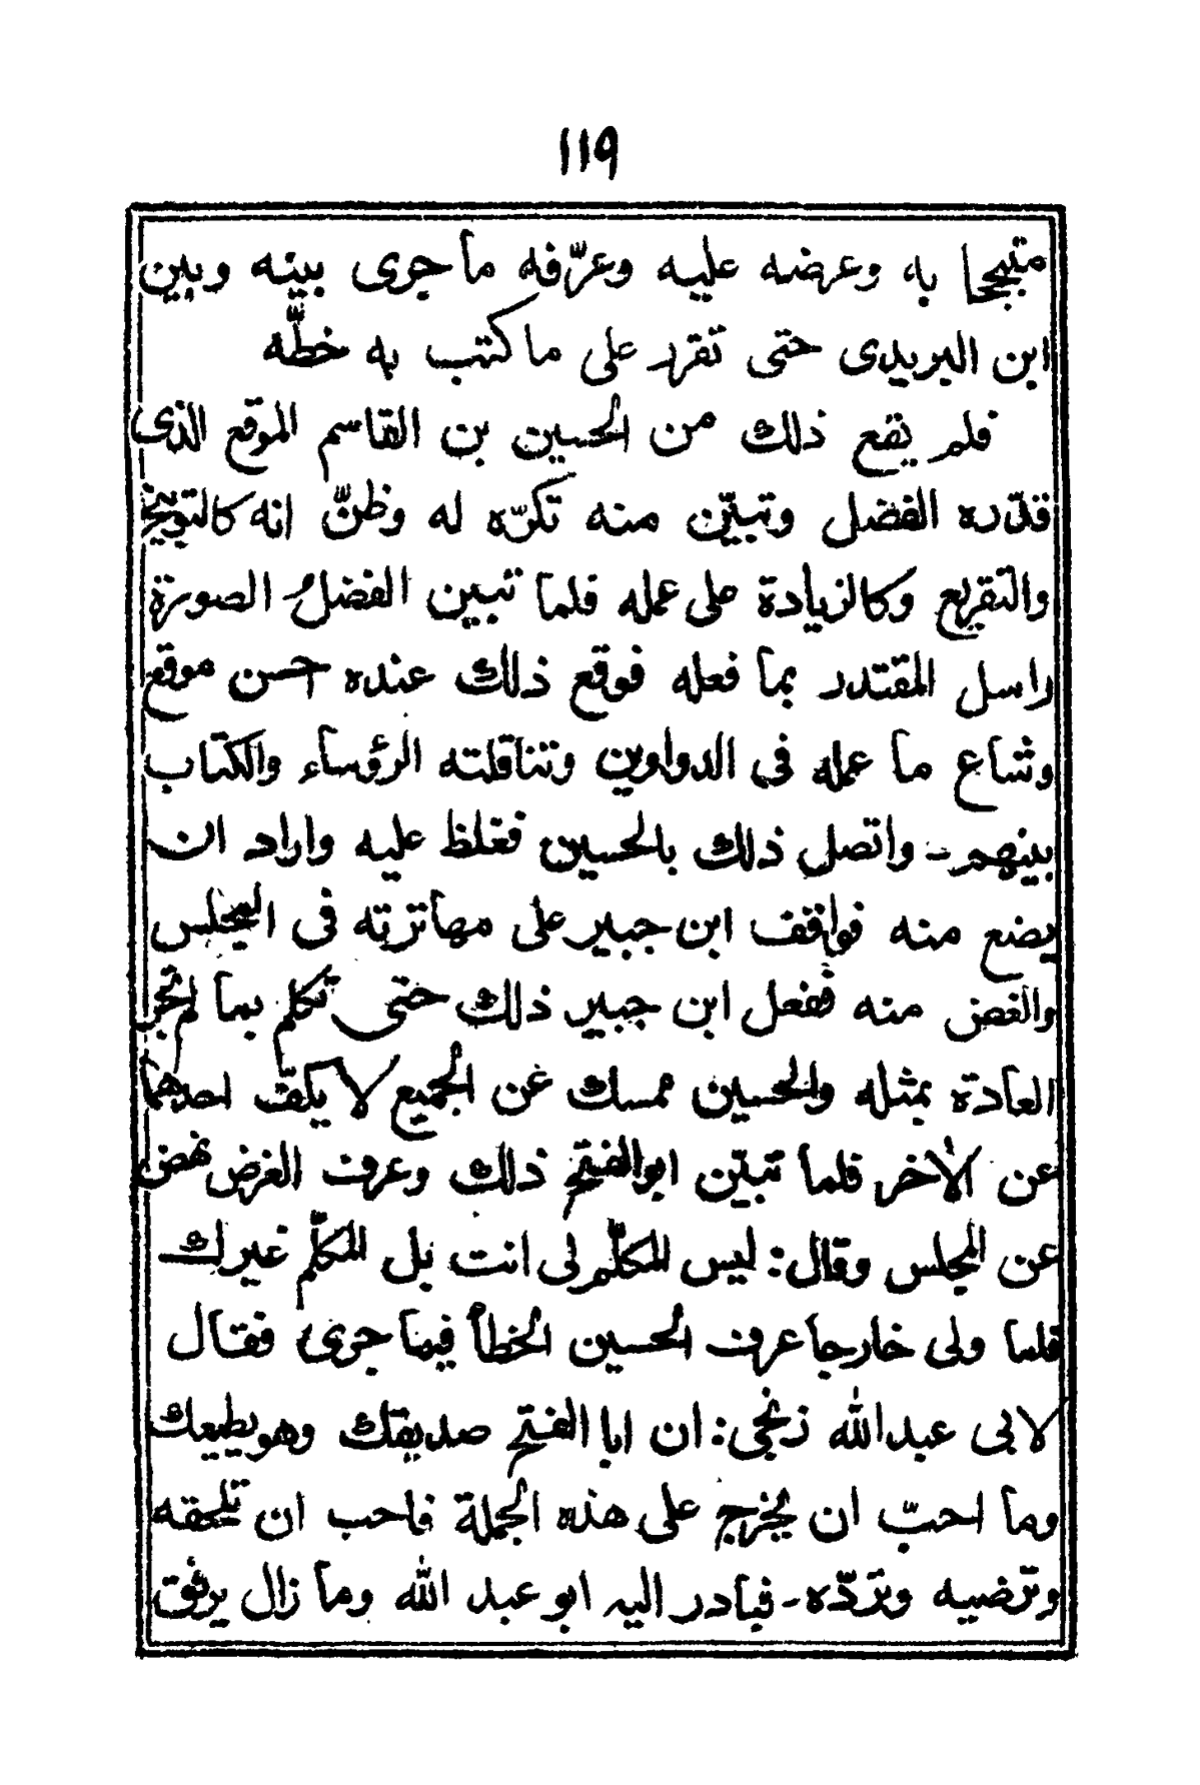 ١١٩
متبجحا به وعرضه عليه وعرّفه ما جرى بينه وبين
ابن البريدى حتى تقرر على ما كتب به خطّه
فلم يقع ذلك من الحسين بن القاسم الموقع الذى
قدّره الفضل وتبيّن منه تكرّه له وظنّ انه كالتوبيخ
والتقريع وكالزيادة على عمله فلما تبين الفضل الصورة
راسل المقتدر بما فعله فوقع ذلك عنده احسن موقع
وشاع ما عمله فى الدواوين وتناقلته الرؤساء والكتاب
بينهم - واتصل ذلك بالحسين فغلظ عليه واراد ان
يضع منه فواقف ابن جبير على مهاترته فى المجلس
والغض منه ففعل ابن جبير ذلك حتى تكلم بما لم تجر
العادة بمثله والحسين ممسك عن الجميع لا يكفّ احدهما
عن الآخر فلما تبيّن ابو الفتح ذلك وعرف الغرض نهض
عن المجلس وقال: ليس المكلّم لى انت بل المكلّم غيرك
فلما ولى خارجا عرف الحسين الخطأ فيما جرى فقال
لابى عبد الله زنجى: ان ابا الفتح صديقك وهو يطيعك
وما احبّ ان يخرج على هذه الجملة فاحب ان تلحقه
وترضيه وتردّه - فبادر اليه ابو عبد الله وما زال يرفق